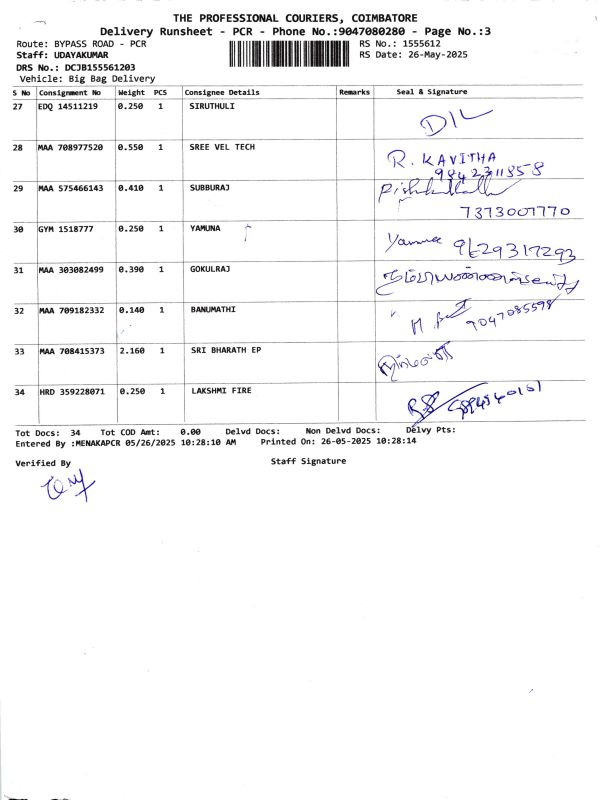 THE PROFESSIONAL COURIERS, COIMBATORE
Delivery Runsheet - PCR - Phone No.:9047080280 - Page No.:3
Route: BYPASS ROAD - PCR RS No.: 1555612
Staff: UDAYAKUMAR RS Date: 26-May-2025
DRS No.: DCJB155561203
Vehicle: Big Bag Delivery
S No Consignment No Weight PCS Consignee Details Remarks Seal & Signature
27 EDQ 14511219 0.250 1 SIRUTHULI
28 MAA 708977520 0.550 1 SREE VEL TECH R. KAVITHA
9842311858
29 MAA 575466143 0.410 1 SUBBURAJ
7373007770
30 GYM 1518777 0.250 1 YAMUNA 9629317293
31 MAA 303082499 0.390 1 GOKULRAJ
32 MAA 709182332 0.140 1 BANUMATHI 9047085598
33 MAA 708415373 2.160 1 SRI BHARATH EP
34 HRD 359228071 0.250 1 LAKSHMI FIRE
Tot Docs: 34 Tot COD Amt: 0.00 Delvd Docs: Non Delvd Docs: Delvy Pts:
Entered By :MENAKAPCR 05/26/2025 10:28:10 AM Printed On: 26-05-2025 10:28:14
Verified By Staff Signature